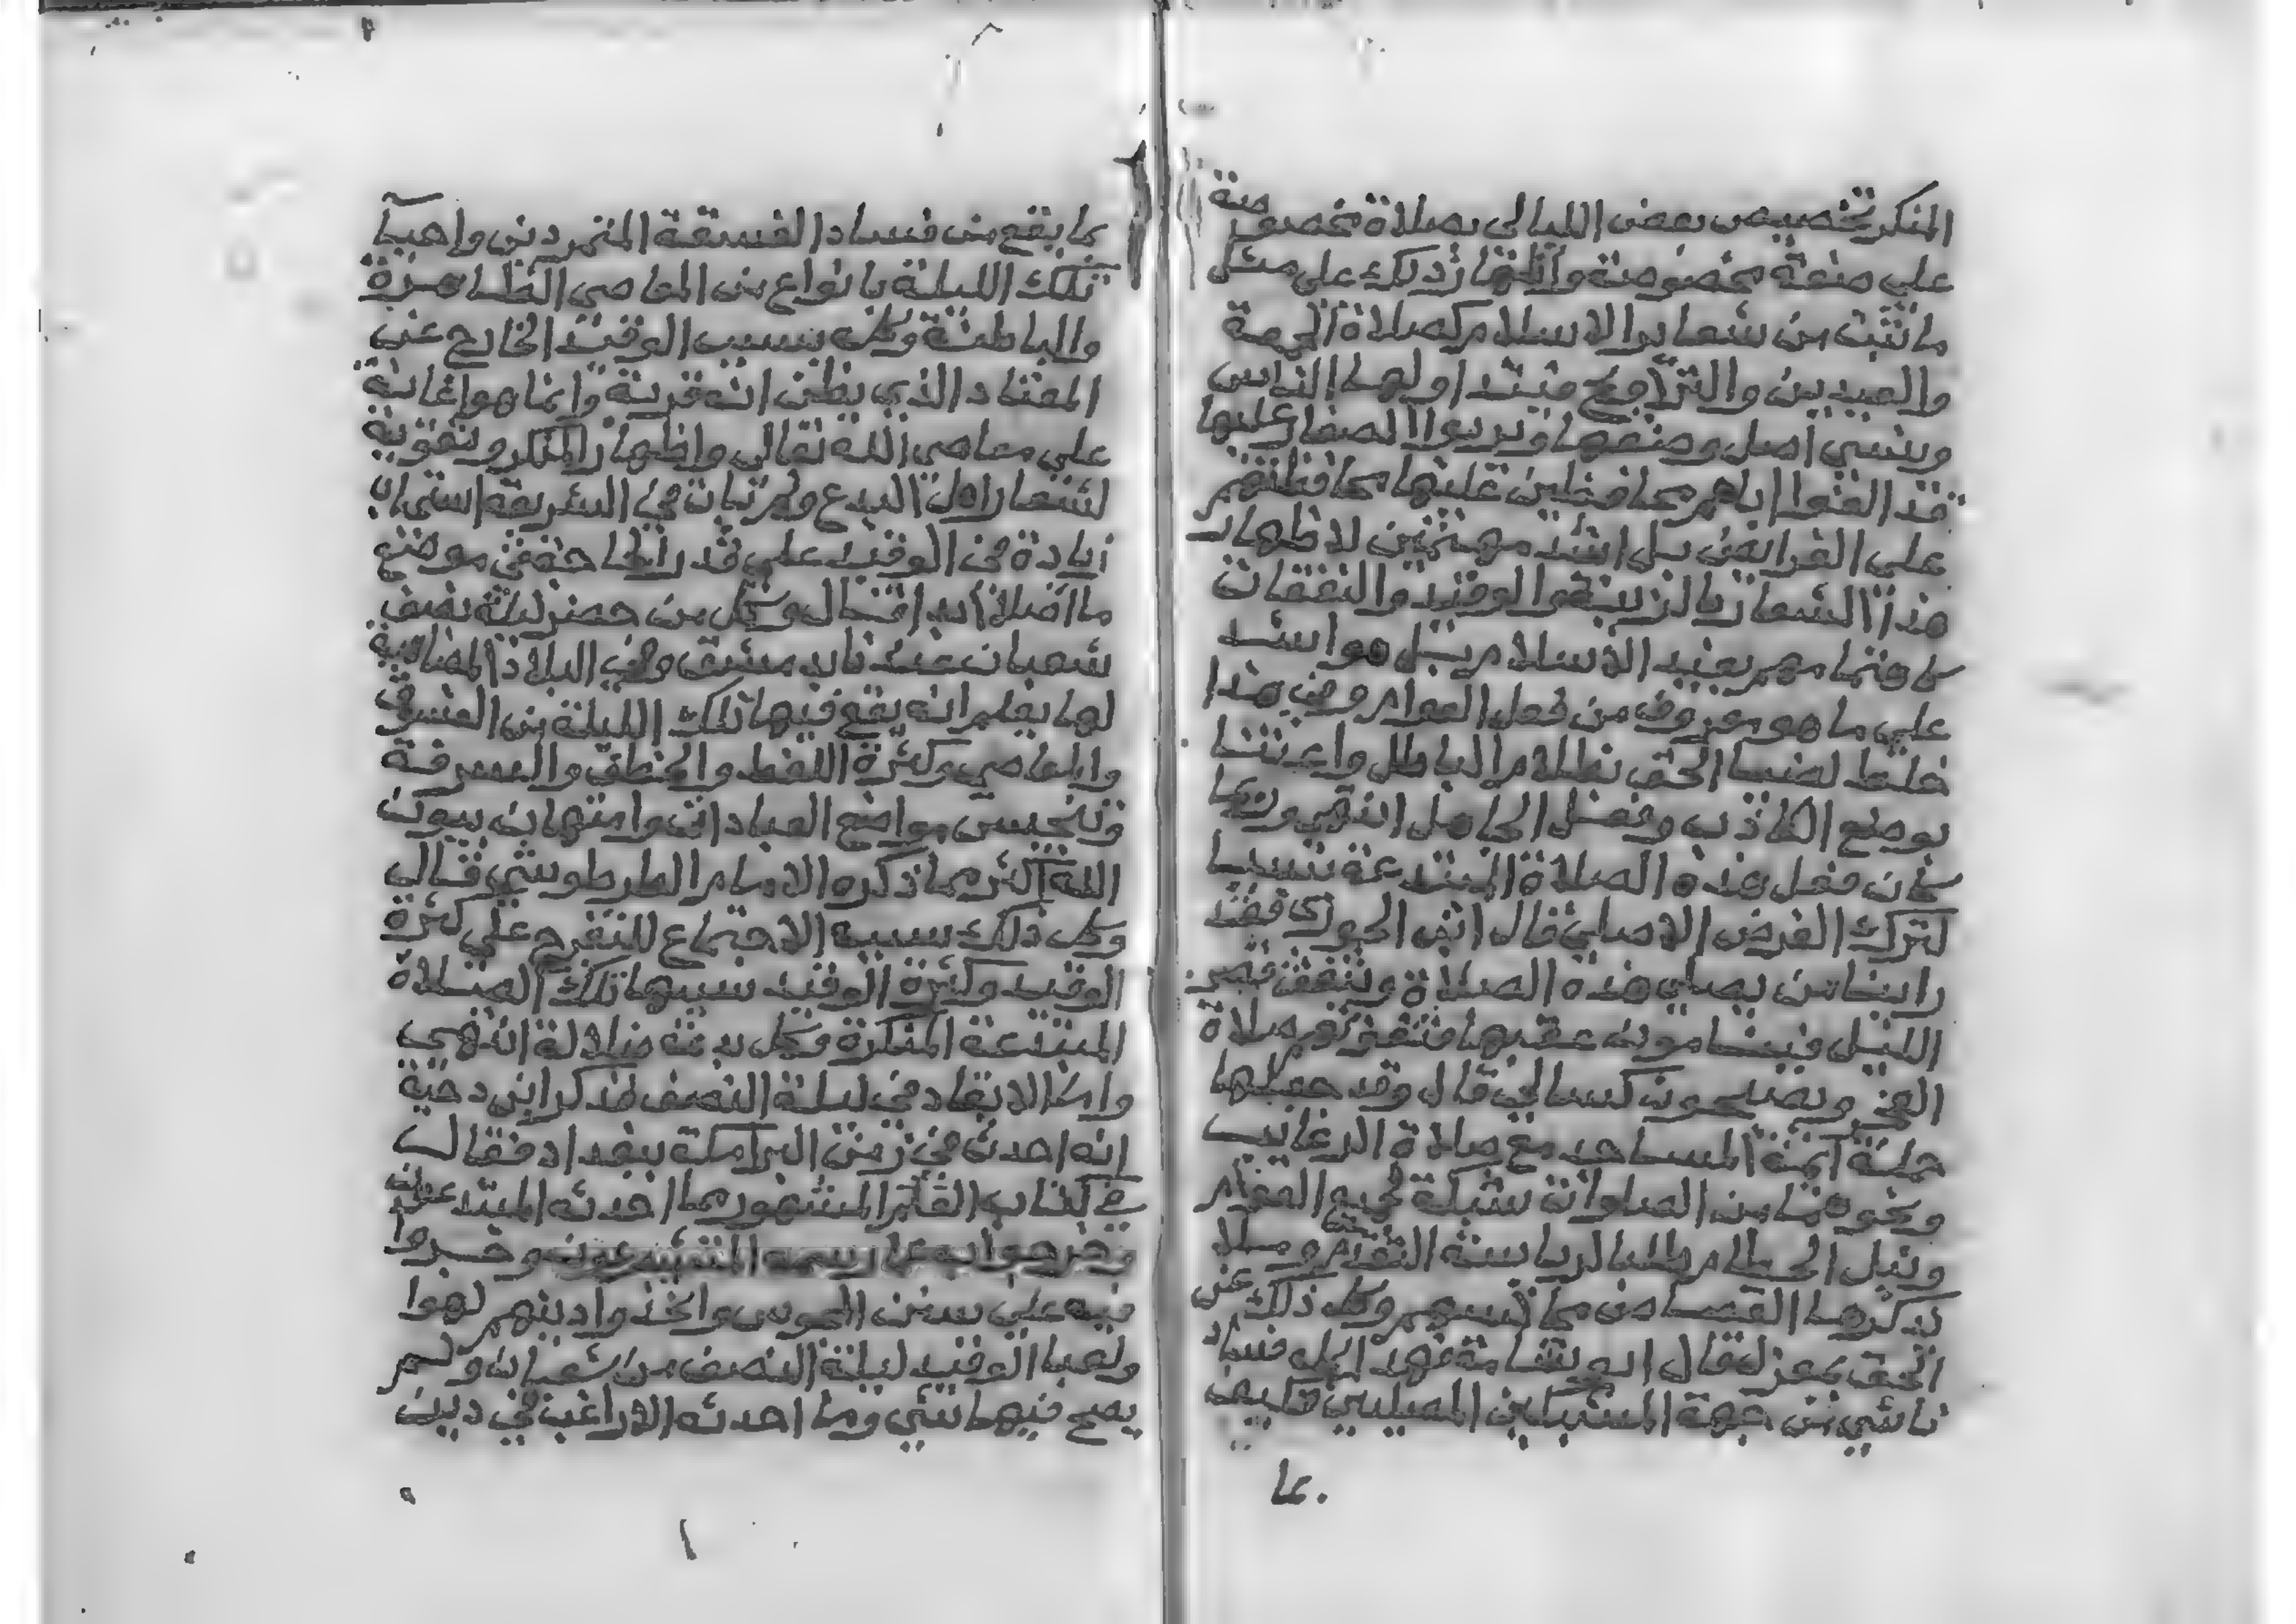 المنكر تخصيص بعض الليالي بصلاة مخصوصة
على صفة مخصوصة واظهار ذلك على مثل
ما ثبت من شعاير الاسلام كصلاة الجمعة
والعيدين والتراويح فيتداولها الناس
وينسى اصل وضعها ويربوا الصغار عليها
قد الفوا اباهم محافظين عليها محافظتهم
على الفرائض بل اشد مهتمين لاظهار
هذا الشعار بالزينة والوقيد والنفقات
كاهتمامهم بعيد الاسلام بل هو اشد
على ما هو معروف من فعل العوام وفي هذا
خلط لضيا الحق بظلام الباطل واعتنا
بوضع الكاذب وفعل الجاهل انتهى وربما
كان فعل هذه الصلاة المبتدعة سببا
لترك الفرض الاصلي قال ابن الجوزي فقد
راينا من يصلي هذه الصلاة ويتفق قصر
الليل فينامون عقبها فتفوتهم صلاة
الفجر ويصبحون كسالى قال وقد جعلها
جهلة ائمة المساجد مع صلاة الرغايب
ونحوهما من الصلوات شبكة لجمع العوام
وطلبا لرياسة التقدم وملا
بذكرها القصاص مجالسهم وكل ذلك عن
الحق بمعزل قال ابو شامة فهذا كله فساد
ناشي من جهة المتنسكين المضلين فكيف
بما
بما يقع من فساد الفسقة المتمردين واحيآ
تلك الليلة بانواع من المعاصي الظاهرة
والباطنة وكله بسبب الوقيد الخارج عن
المعتاد الذي يظن انه قربة وانما هو اعانة
على معاصي الله تعالى واظهار المنكر وتقوية
لشعار اهل البدع ولم تات في الشريعة استحباب
زيادة في الوقيد على قدر الحاجة في موضع
ما اصلا ابدا قال وكل من حضر ليلة نصف
شعبان عندنا بدمشق وفي البلاد المضاهية
لها يعلم انه يقع فيها تلك الليلة من الفسوق
والمعاصي وكثرة اللغط والخطف والسرقة
وتنجيس مواضع العبادات وامتهان بيوت
الله اكثر مما ذكره الامام الطرطوشي قال
وكل ذلك سببه الاجتماع للتفرج على كثرة
الوقيد وكثرة الوقيد سببها تلك الصلاة
المبتدعة المنكرة وكل بدعة ضلالة انتهى
واما الايقاد في ليلة النصف فذكر ابن دحية
انه احدث في زمن البرامكة ببغداد فقال
في كتاب العلم المشهور مما احدثه المبتدعون
وخرجوا به عما رسمه المتشرعون وجروا
فيه على سنن المجوس واتخذوا دينهم لهوا
ولعبا الوقيد ليلة النصف من شعبان ولم
يصح فيها شي وما احدثه الا راغب في دين